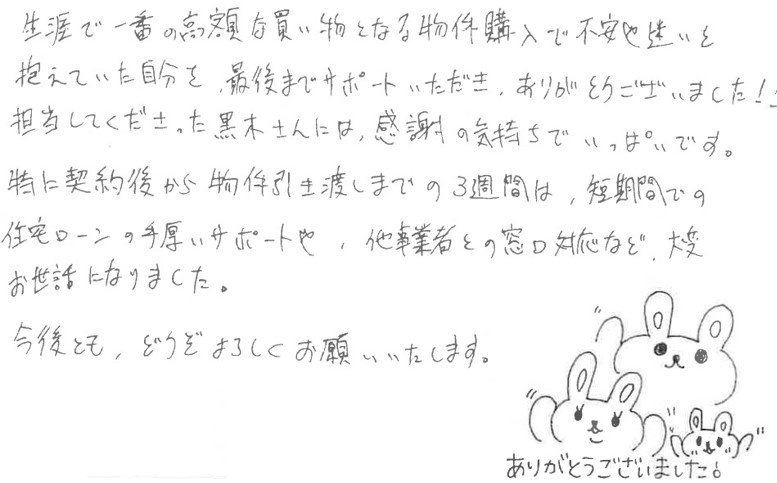 生涯で一番の高額な買い物となる物件購入で不安や迷いを
抱えていた自分を、最後までサポートいただき、ありがとうございました!!
担当してくださった黒木さんには、感謝の気持ちでいっぱいです。
特に契約後から物件引き渡しまでの3週間は、短期間での
住宅ローンの手厚いサポートや、他事業者との窓口対応など、大変
お世話になりました。
今後とも、どうぞよろしくお願いいたします。
ありがとうございました!